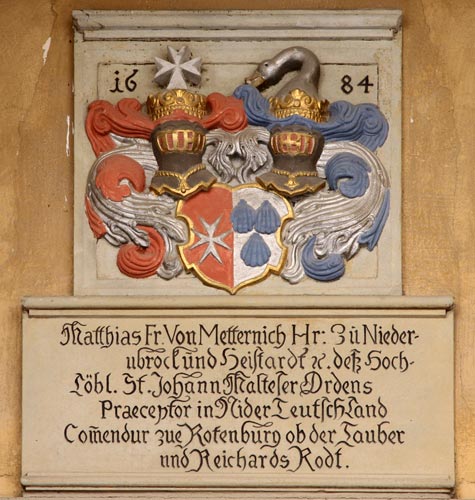 1684
Matthias Fr. Von Metternich Hr: Zü Nieder-
ubrock und Heistardt ꝛc. deß Hoch-
Löbl. St. Johann Malteser Ordens
Praeceptor in Nider Teutschland
Com̄endur zue Rotenburg ob der Tauber
und Reichards Rodt.